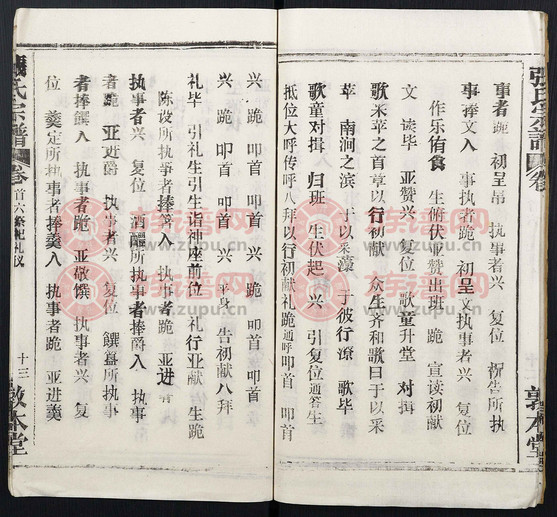 張氏宗譜 卷
敦本堂
事者跪 初呈帛 执事者兴 复位 祝告所执
事捧文入 事跪 初呈文执事者兴 复位
作乐侑食 生俯伏亚赞出班 跪 宣读初献
文 读毕 亚赞兴复位 歌童升堂 对揖
歌采苹之首章以行初献 众生齐和歌曰于以采
苹 南涧之滨 于以采藻 于彼行潦 歌毕
歌童对揖 归班 生伏起 兴 引复位通答生
抵位大呼传呼八拜以行初献礼跪通呼叩首 叩首
兴 跪 叩首 兴 跪 叩首
兴 跪 叩首 兴 平身 告初献八拜
礼毕 引礼生引生诣神座前位 礼行亚献 生跪
陈设所执事者捧 入 执事者跪 亚进
执事者兴 复位 酒醞所执事者捧爵入 执事
者跪 亚进爵 执事者兴 复位 馔盒所执事
者捧馔入 执事者跪 亚敬馔 执事者兴 复
位 羹定所执事者捧羹入 执事者跪 亚进羹
張氏宗譜 卷首六祭祀礼仪 十三 敦本堂